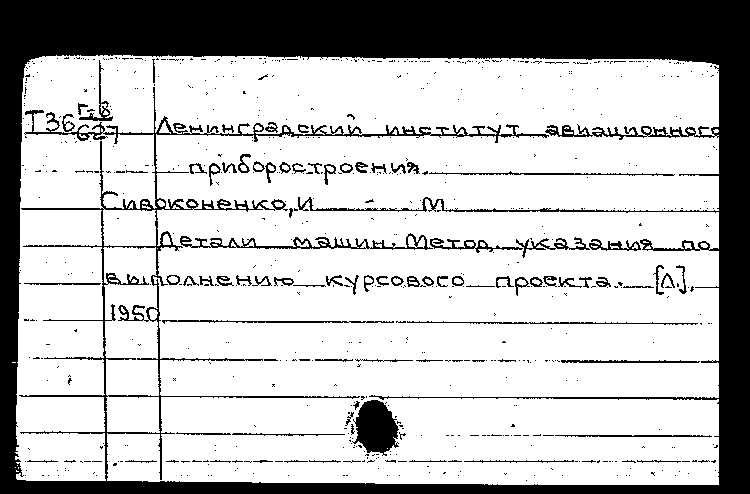 Т36 Г-8 Ленинградский институт авиационного
627
приборостроения.
Сивоконенко, И - М
Детали машин. Метод. указания по
выполнению курсового проекта. [Л.],
1950